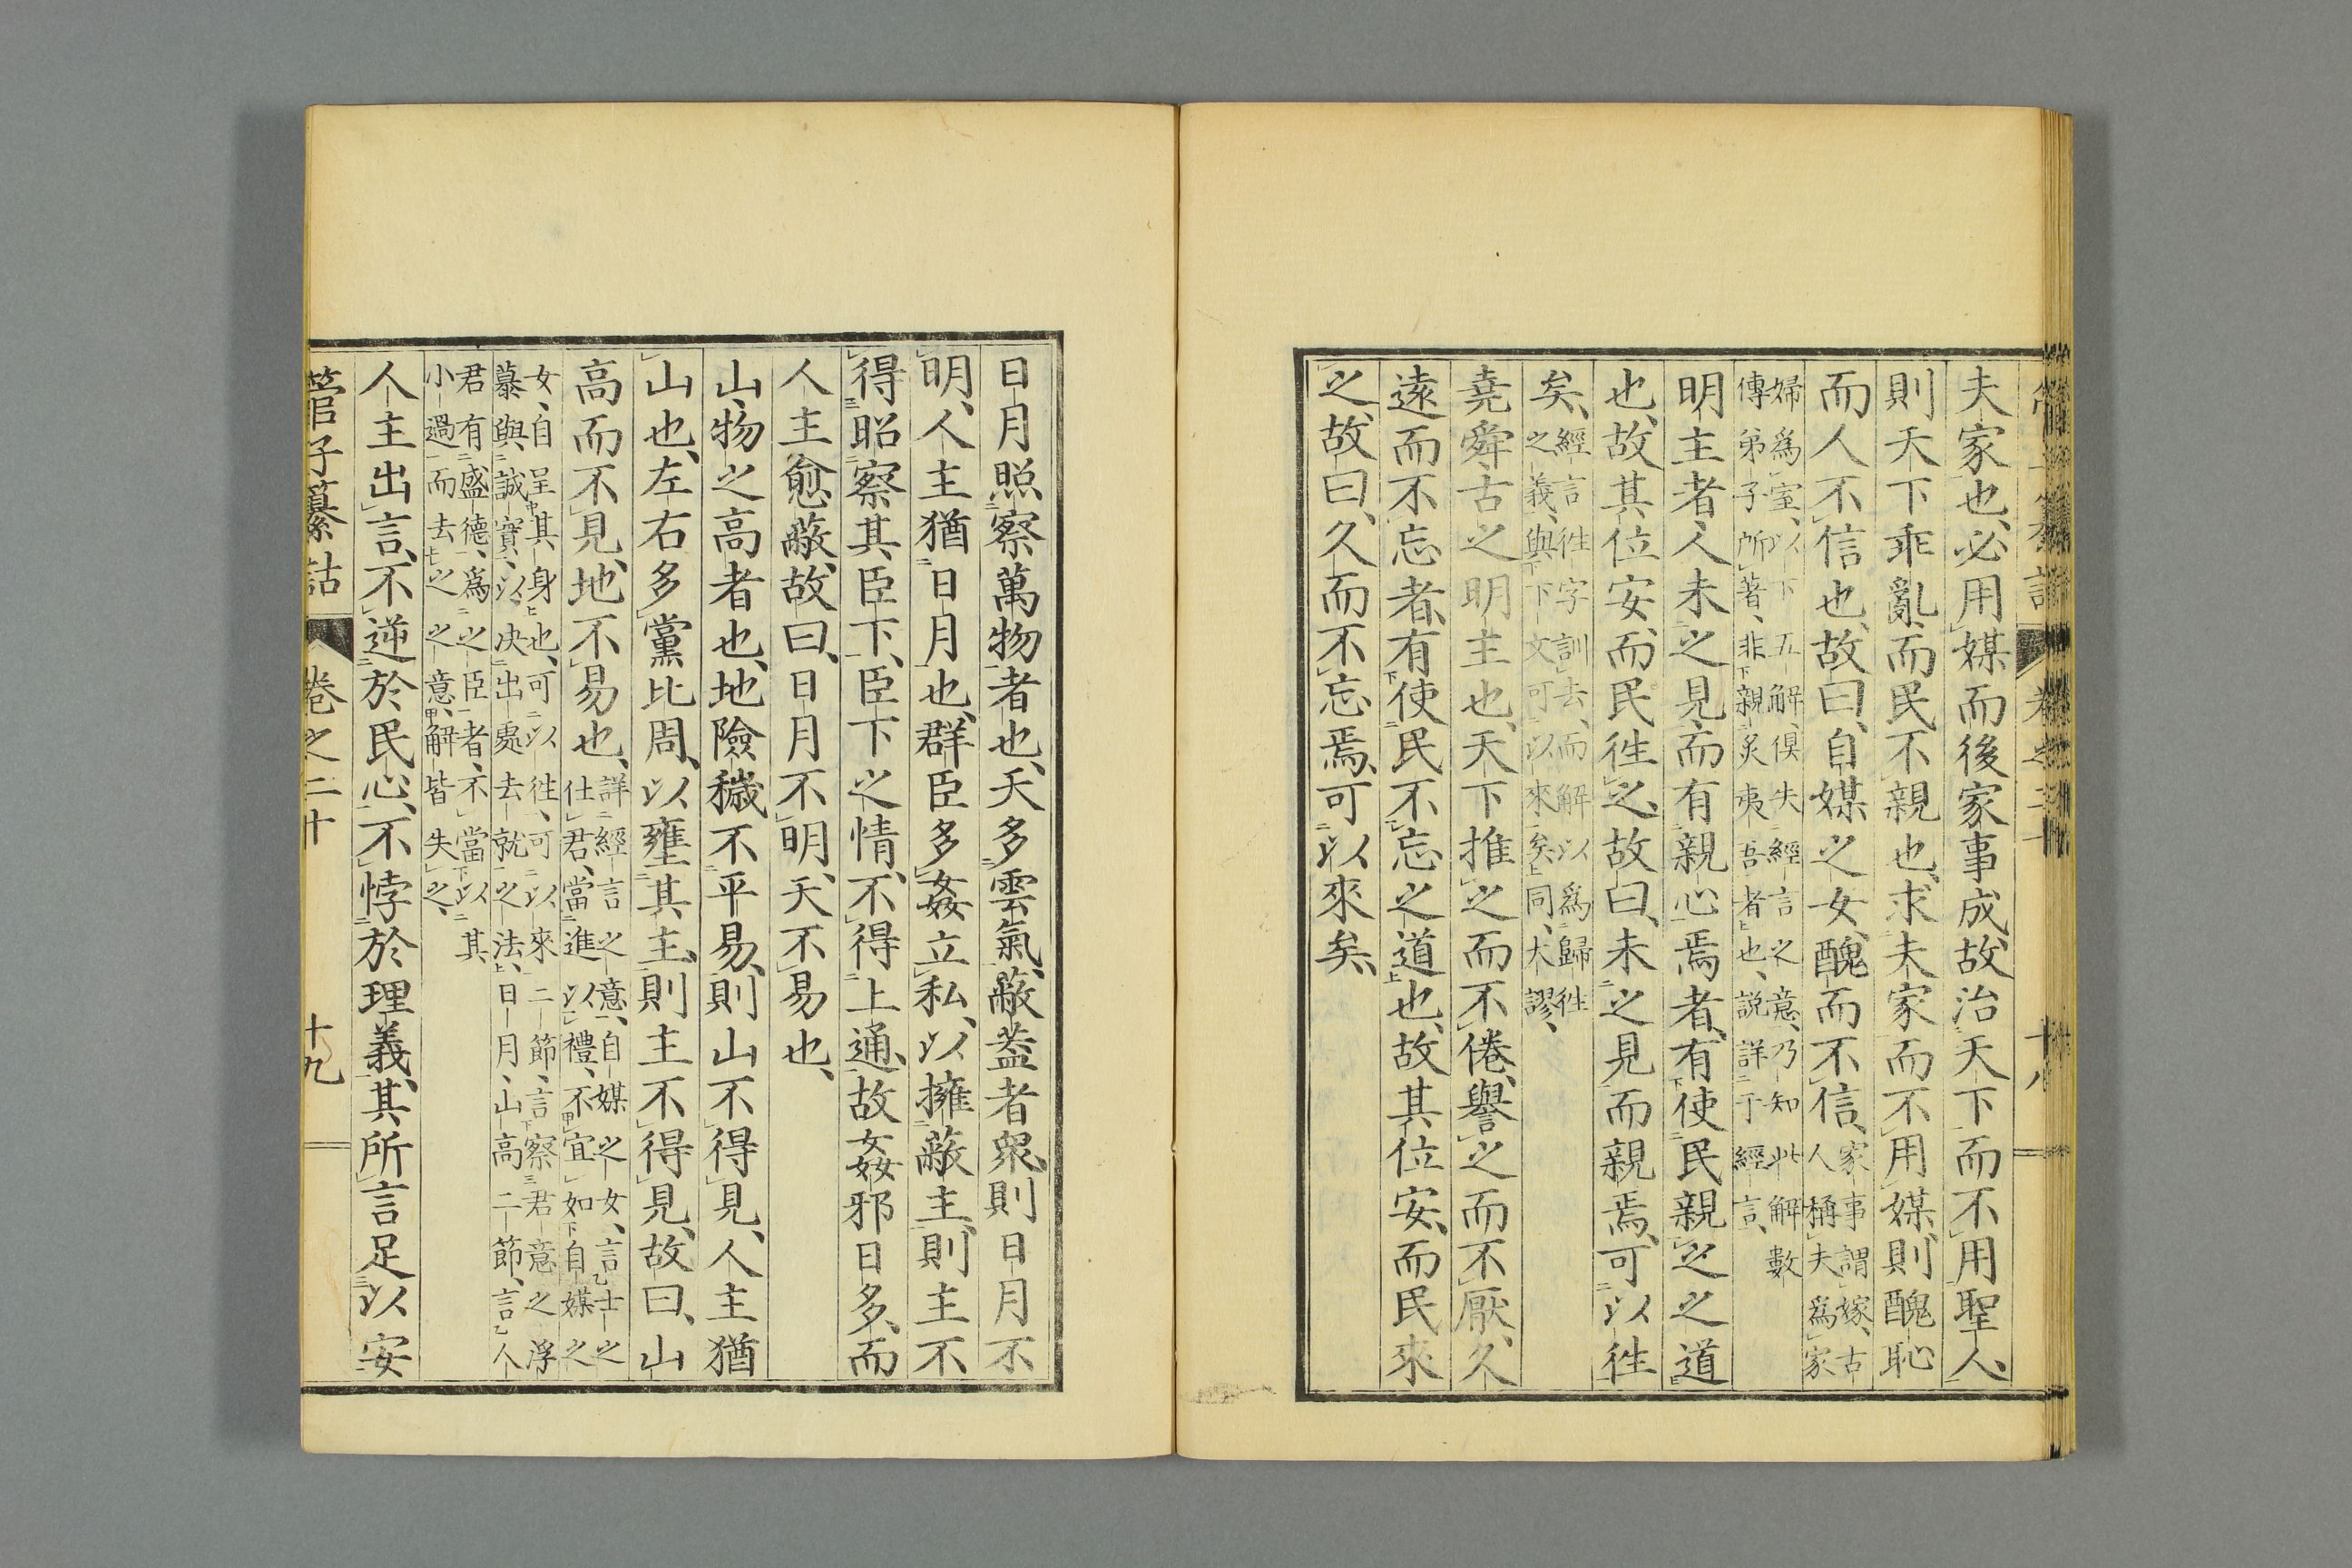 夫家也、必用媒而後家事成、故治天下而不用聖人、
則天下乖亂、而民不親也、求夫家而不用媒、則醜恥
而人不信也、故曰、自媒之女、醜而不信、家事謂嫁、古人稱夫爲家
婦爲室、以下五解、俱失經言之意、乃知此解數
傳弟子所著、非親炙夷吾者也、説詳于經言、
明主者、人未之見、而有親心焉者、有使民親之之道
也、故其位安、而民往之、故曰、未之見而親焉、可以往
矣、經言往字訓去、而解以爲歸往
之義、與下文可以來矣同、大謬、
堯舜、古之明主也、天下推之而不倦、譽之而不厭、久
遠而不忘者、有使民不忘之道也、故其位安、而民來
之、故曰、久而不忘焉、可以來矣、
日月照察萬物者也、天多雲氣、蔽葢者衆、則日月不
明、人主猶日月也、群臣多姦立私、以擁蔽主、則主不
得昭察其臣下、臣下之情、不得上通、故姦邪日多、而
人主愈蔽、故曰、日月不明、天不易也、
山、物之高者也、地險穢不平易、則山不得見、人主猶
山也、左右多黨比周、以壅其主、則主不得見、故曰、山
高而不見、地不易也、詳經言之意、自媒之女、言士之
仕君、當進以禮、不宜如自媒之
女、自呈其身也、可以往、可以來二節、言察君意之浮
慕與誠實、以決出處去就之法、日月、山高二節、言人
君有盛德、爲之臣者、不當以其
小過而去之之意、解皆失之、
人主出言、不逆於民心、不悖於理義、其所言足以安
管子纂詁
卷之二十
十九